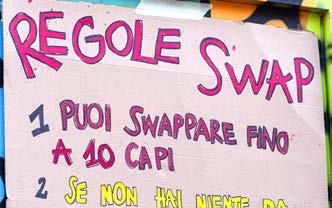 REGOLE SWAP
1 PUOI SWAPPARE FINO
A 10 CAPI
2 SE NON HAI NIENTE DA